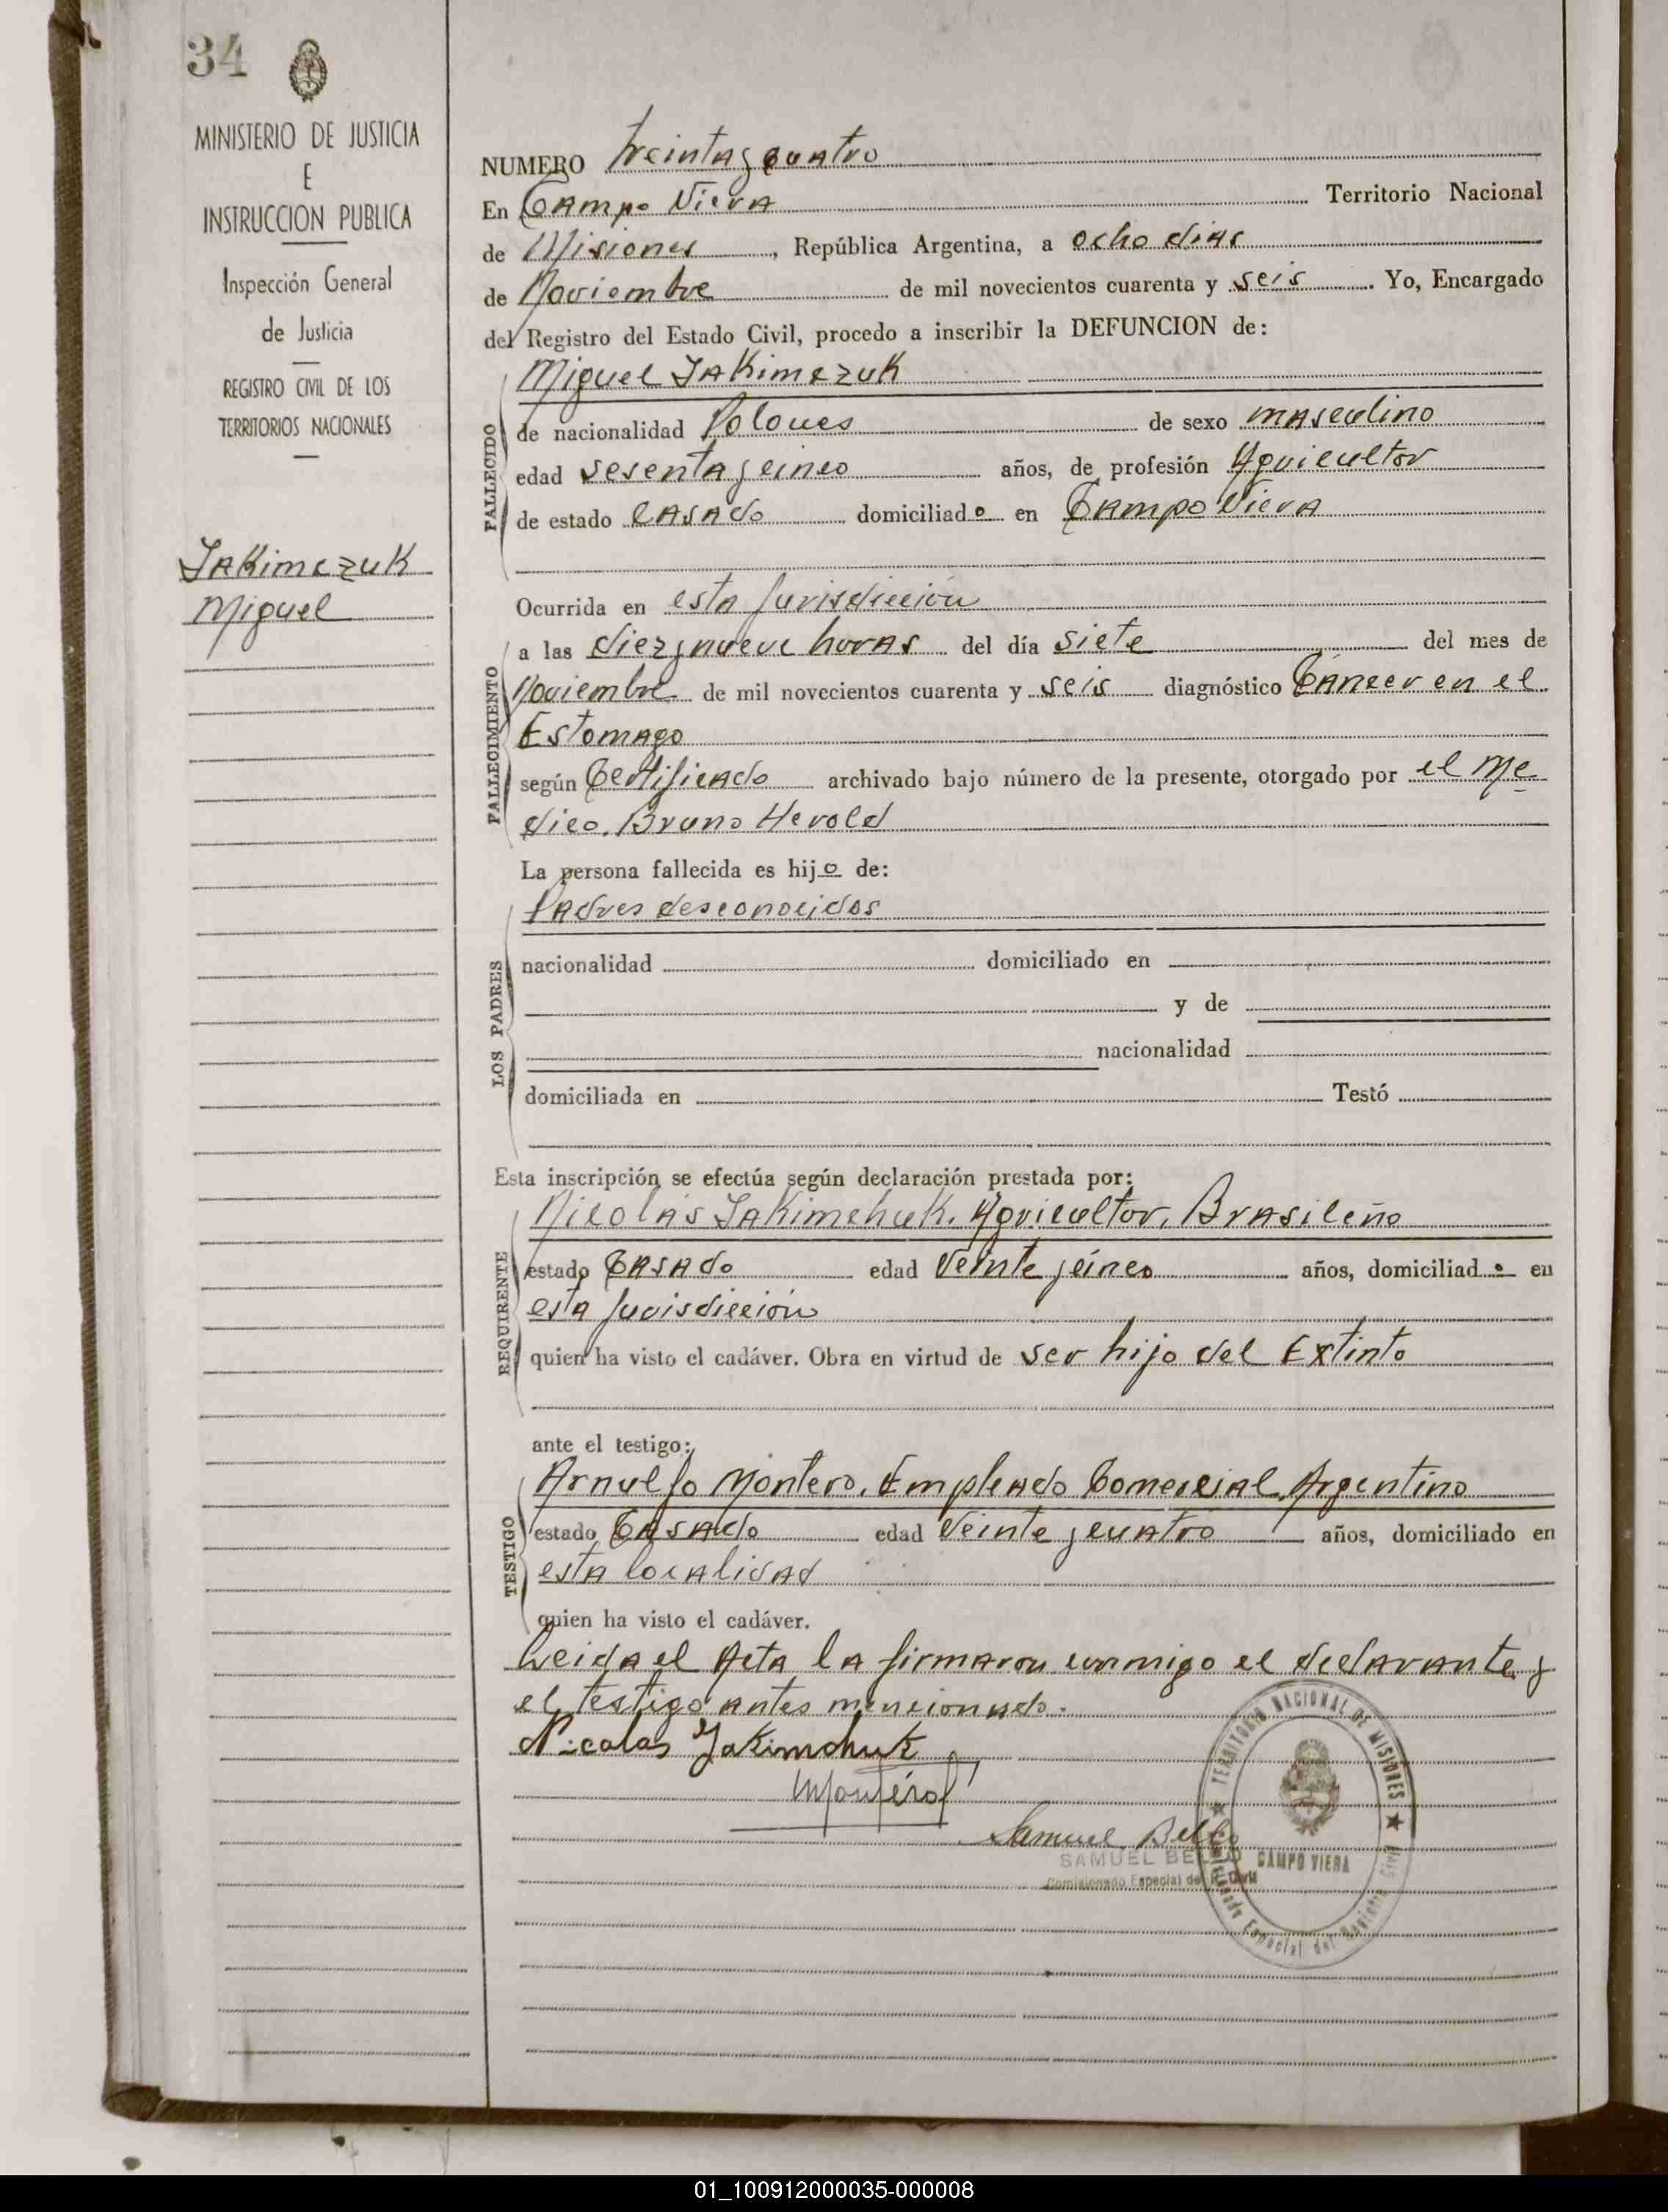 34
MINISTERIO DE JUSTICIA
E
INSTRUCCION PUBLICA
Inspección General
de Justicia
REGISTRO CIVIL DE LOS
TERRITORIOS NACIONALES
Jakimczuk
Miguel
NUMERO treinta y cuatro
En Campo Viera Territorio Nacional
de Misiones, República Argentina, a ocho dias
de Noviembre de mil novecientos cuarenta y seis. Yo, Encargado
del Registro del Estado Civil, procedo a inscribir la DEFUNCION de:
FALLECIDO
Miguel Jakimczuk
de nacionalidad Polones de sexo masculino
edad sesenta y cinco años, de profesión Agricultor
de estado casado domiciliado en Campo Viera
Ocurrida en esta Jurisdicción
FALLECIMIENTO
a las diez y nueve horas del día siete del mes de
Noviembre de mil novecientos cuarenta y seis diagnóstico Cáncer en el
Estomago
según Certificado archivado bajo número de la presente, otorgado por el Me
dico. Bruno Herold
La persona fallecida es hijo de:
LOS PADRES
Padres desconocidos
nacionalidad domiciliado en
y de
nacionalidad
domiciliada en Testó
Esta inscripción se efectúa según declaración prestada por:
REQUIRENTE
Nicolás Jakimchuk. Agricultor. Brasileño
estado Casado edad Veinte y cinco años, domiciliado en
esta Jurisdicción
quien ha visto el cadáver. Obra en virtud de ser hijo del Extinto
ante el testigo:
TESTIGO
Arnulfo Montero. Empleado Comercial. Argentino
estado Casado edad Veinte y cuatro años, domiciliado en
esta localidad
quien ha visto el cadáver.
Leida el Acta la firmaron conmigo el declarante y
el testigo antes mencionado.
Nicolas Jakimchuk
Montero
Samuel Bello
SAMUEL BELLO
Comisionado Especial del R. Civil
TERRITORIO NACIONAL DE MISIONES
CAMPO VIERA
Comisionado Especial del Registro Civil
01_100912000035-000008